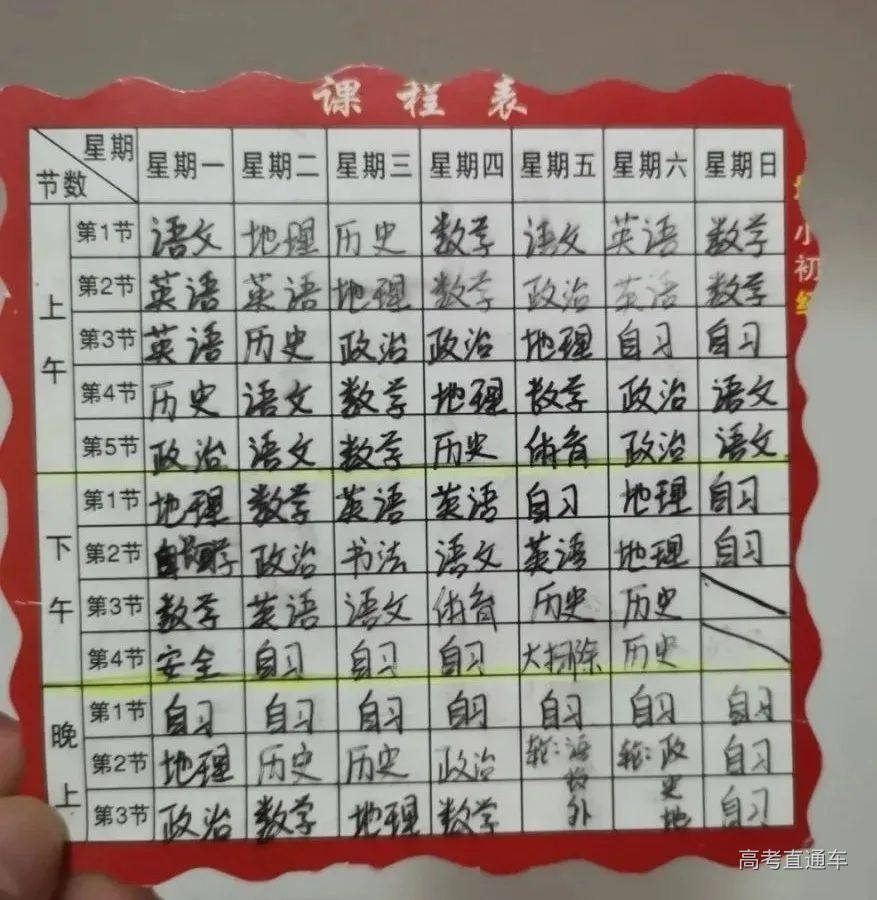 课程表
星期 节数 星期一 星期二 星期三 星期四 星期五 星期六 星期日
上午
第1节 语文 地理 历史 数学 语文 英语 数学
第2节 英语 英语 地理 数学 政治 英语 数学
第3节 英语 历史 政治 政治 地理 自习 自习
第4节 历史 语文 数学 地理 数学 政治 语文
第5节 政治 语文 数学 历史 体育 政治 语文
下午
第1节 地理 数学 英语 英语 自习 地理 自习
第2节 政治 书法 语文 英语 地理 自习
第3节 数学 英语 语文 体育 历史 历史
第4节 安全 自习 自习 自习 大扫除 历史
晚上
第1节 自习 自习 自习 自习 自习 自习 自习
第2节 地理 历史 历史 政治 轮:语 轮:政 自习
数 史
第3节 政治 数学 地理 数学 外 地 自习
小
初
高考直通车